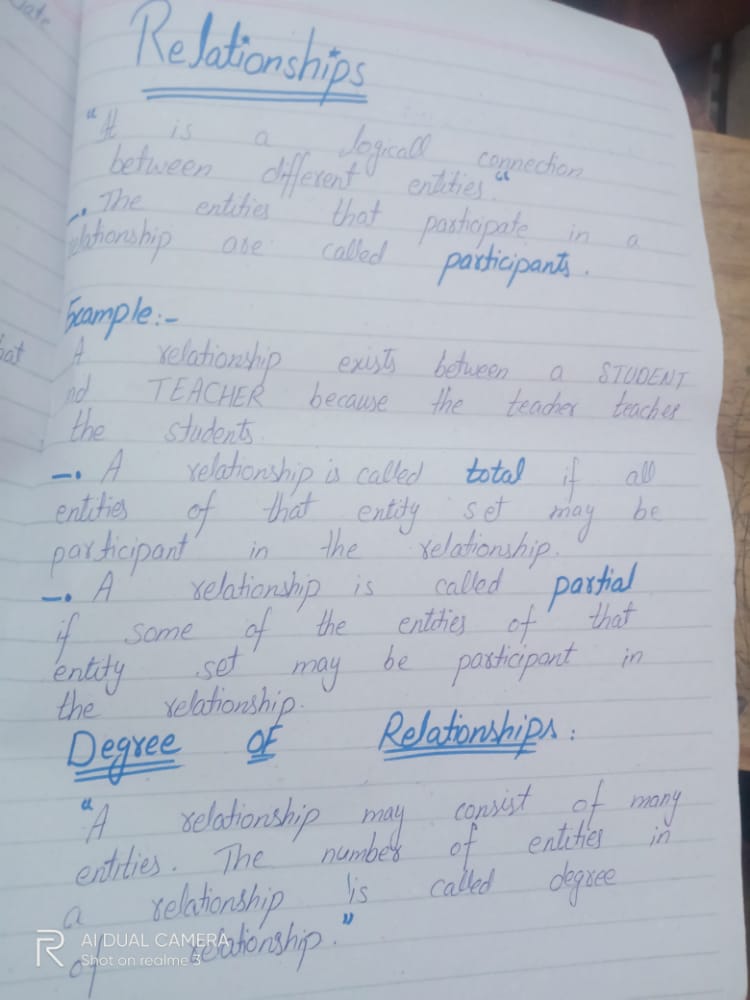 Relationships
"It is a logicall connection
between different entities"
-. The entities that participate in a
elationship are called participants.
Example:-
A relationship exists between a STUDENT
nd TEACHER because the teacher teaches
the students
-. A relationship is called total if all
entities of that entity set may be
participant in the relationship.
-. A relationship is called partial
if some of the entities of that
entity set may be participant in
the relationship.
Degree OF Relationships:
"A relationship may consist of many
entities. The number of entities in
a relationship is called degree
of relationship."
R AI DUAL CAMERA
Shot on realme 3